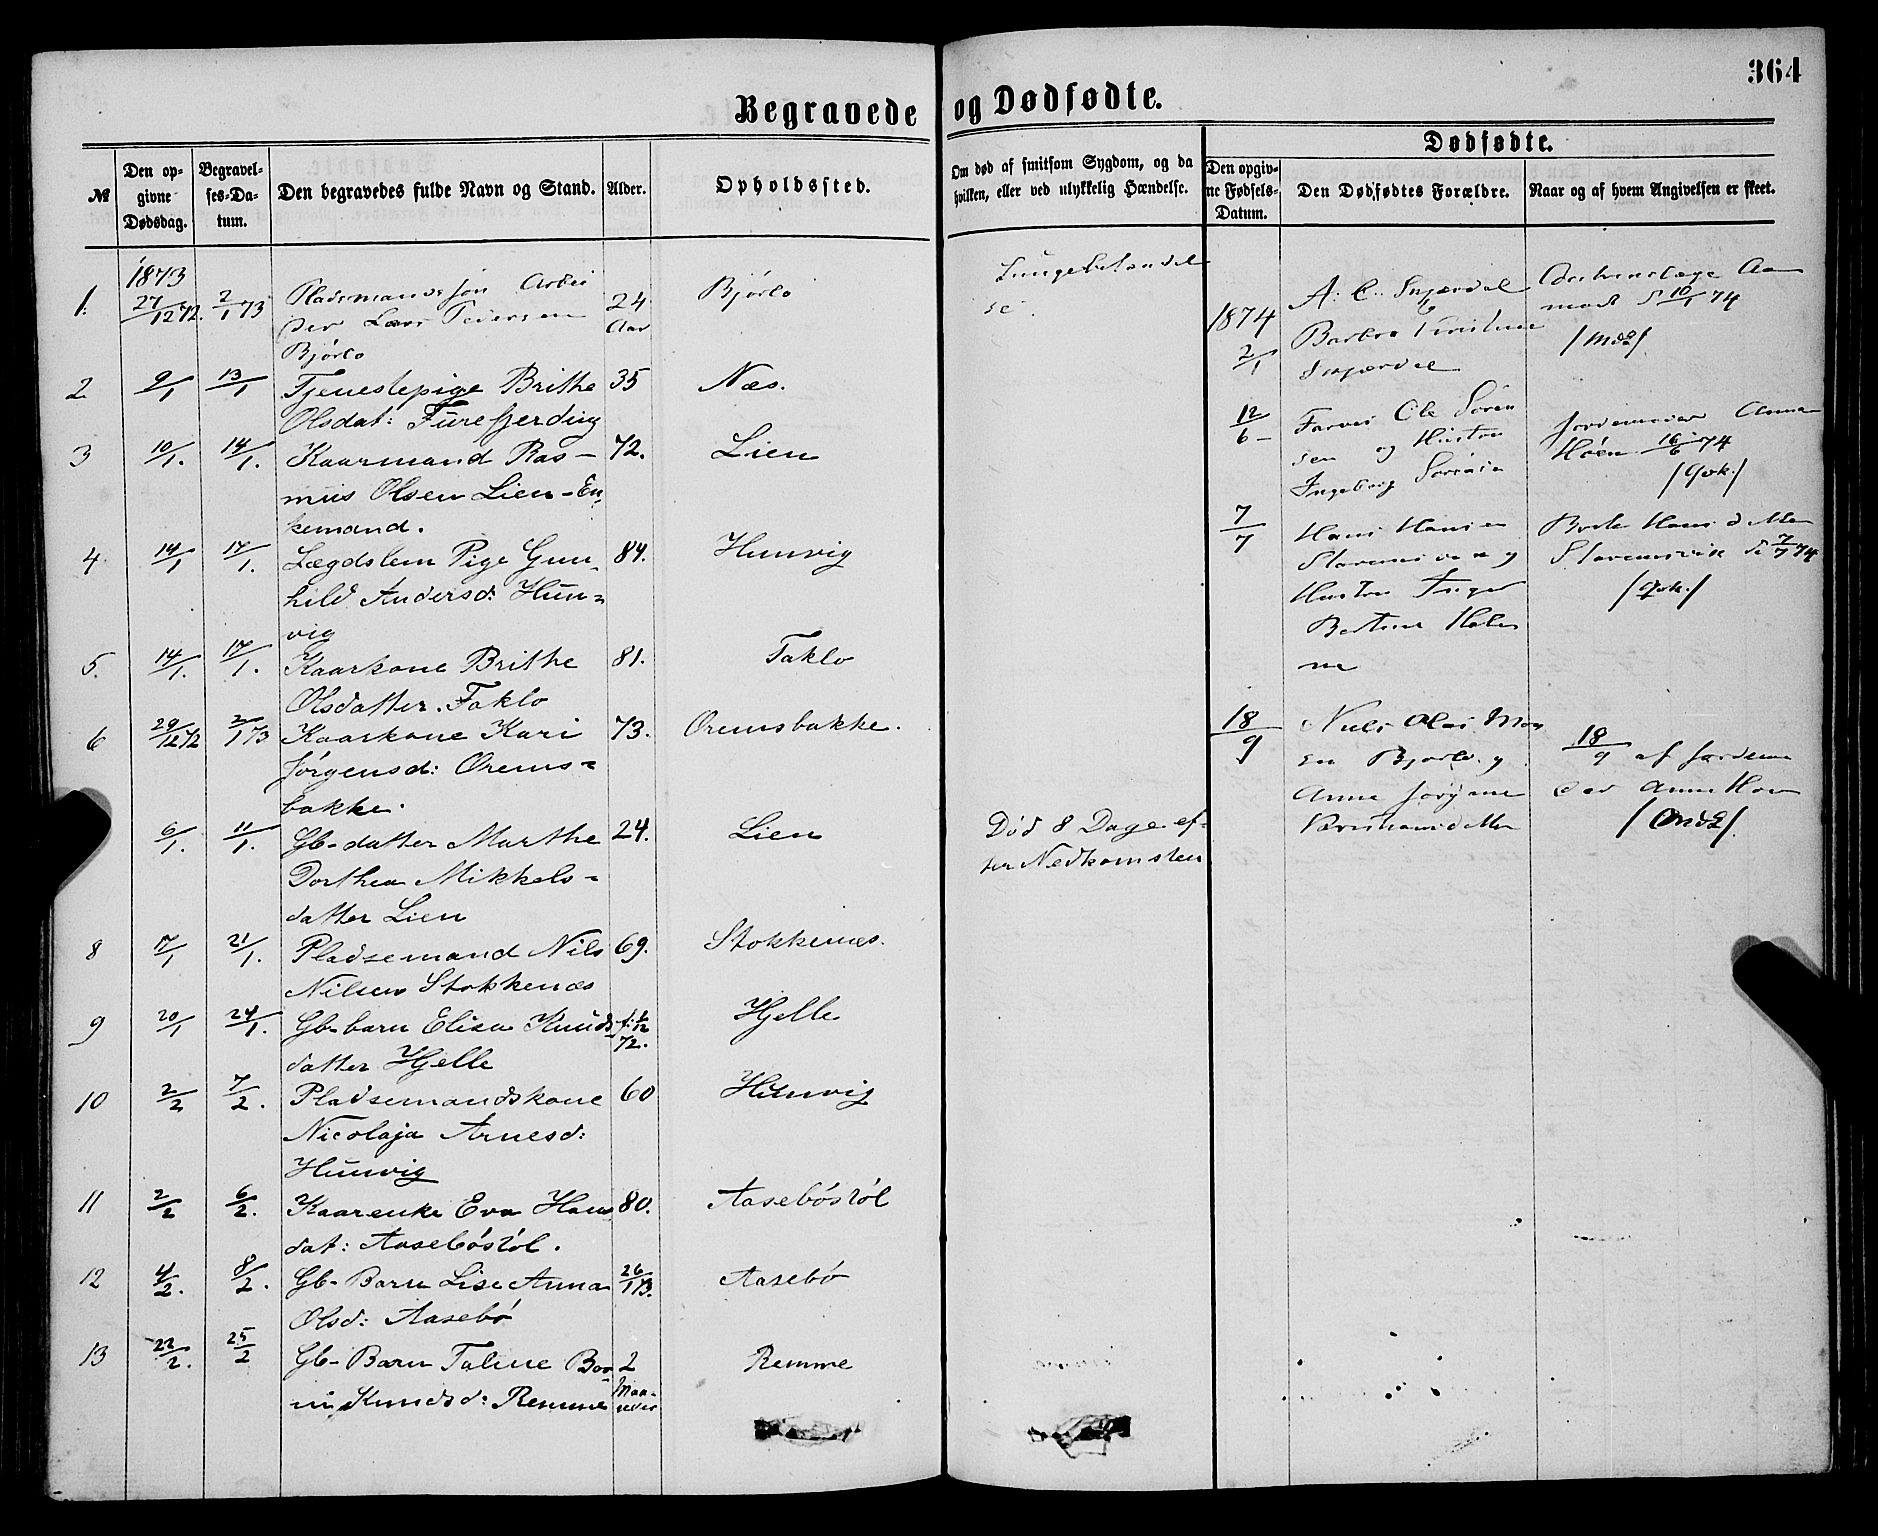 364
Begravede og Dødfødte.
№
Den op-
givne
Dødsdag.
Begravel-
ses-Da-
tum.
Den begravedes fulde Navn og Stand.
Alder.
Opholdssted.
Om død af smitsom Sygdom, og da
hvilken, eller ved ulykkelig Hændelse.
Dødfødte.
Den opgiv-
ne Fødsels-
Datum.
Den Dødfødtes Forældre.
Naar og af hvem Angivelsen er skeet.
1873
1. 27/12 72. 2/1 73 Pladsmands søn Arbei
der Lars Peiersen 24 Aar Bjørlo
Bjørlo
Lungebetændel
se.
2 9/1 13/1 Tjenestepige Brithe 35 Næs.
Olsdat: Fürefjerding
3 10/1. 14/1. Kaarmand Ras- 72. Lien
mus Olsen Lien - En-
kemand.
4 14/1 17/1. Lægdslem Pige Gun- 84. Hunvig
hild Andersd: Hun-
vig
5. 14/1. 17/1. Kaarkone Brithe 81. Taklo
Olsdatter. Taklo
6 29/12 72 2/1 73 Kaarkone Kari 73. Oremsbakke.
Jørgensd: Orems-
bakke.
6/1. 11/1. Gb-datter Marthe 24. Lien
Dorthea Mikkels-
datter Lien
Død 8 Dage ef-
ter Nedkomsten
8 17/1 21/1. Pladsemand Nils 69. Stokkenæs.
Nilsen Stokkenæs
9 20/1 24/1. Gb-barn Elisa Knuds f: 1/12 72. Hjelle
datter Hjelle
10 2/2 7/2. Pladsemandskone 60 Hunvig
Nicolaja Arnesd:
Hunvig
11 2/2 6/2. Kaarenke Eva Hans 80. Aasebøstøl
dat: Aasebøstøl.
12 4/2. 8/2. Gb-Barn Lise Anna 26/1 73. Aasebø
Olsd: Aasebø
13 22/2. 25/2 Gb-Barn Taline 2 Maa-neder Remme
Knudsd: Remme
1874
2/1
Barbra Kristine
10/1 74
12/6 - Ole Sören
sen og Hustru
Ingeborg
Jordemoder Anna
Høen 16/6 74
7/7 Hans Hansen
og
Hustru Inger
Bertine
ne
7/7 74
18/9 Niels Olai
Bjørlo og
Anne
18/9 af Jordemo
der Anne Hoen